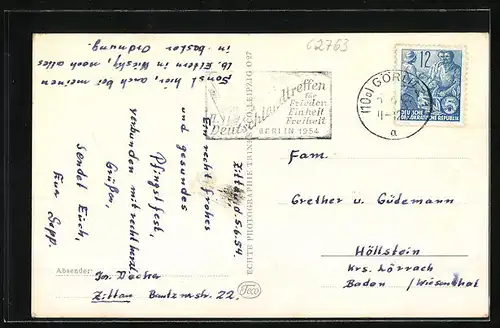 C2763
Sonst hier, auch bei meinen
lb. Eltern in Niesky, noch alles
in bester Ordnung.
Zittau, d. 5.6.54.
Ein recht frohes
und gesundes
Pfingstfest,
verbunden mit recht herzl.
Grüßen,
sendet Euch,
Eur Sepp.
Absender:
Zittau Bautznerstr. 22.
ECHTE PHOTOGRAPHIE
CO. LEIPZIG O 27
Deutschlandtreffen
für
Frieden
Einheit
Freiheit
BERLIN 1954
(10a) GÖR
a
12
DEUTSCHE
DEMOKRATISCHE REPUBLIK
Fam.
Grether u. Güdemann
Höllstein
Krs. Lörrach
Baden / Wiesenthal